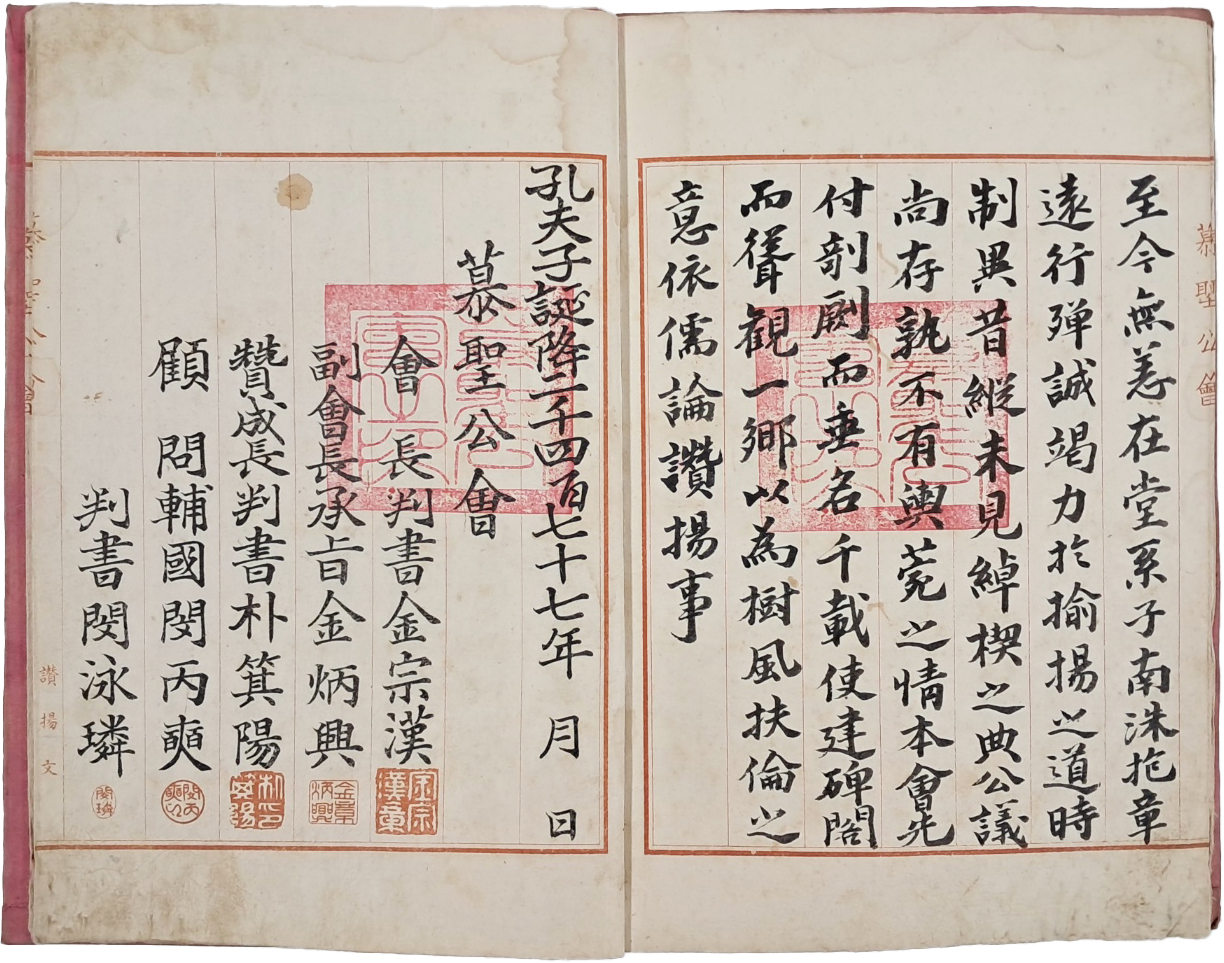 慕聖公會
至今無恙在堂系子南洙抱章
遠行殫誠竭力於揄揚之道時
制異昔縱未見綽楔之典公議
尚存孰不有輿菀之情本會先
付剞劂而垂名千載使建碑閣
而聳觀一鄉以為樹風扶倫之
意依儒論讚揚事
孔夫子誕降二千四百七十七年 月 日
慕聖公會
會長判書金宗漢
副會長承旨金炳興
贊成長判書朴箕陽
顧問輔國閔丙奭
判書閔泳璘
讚揚文